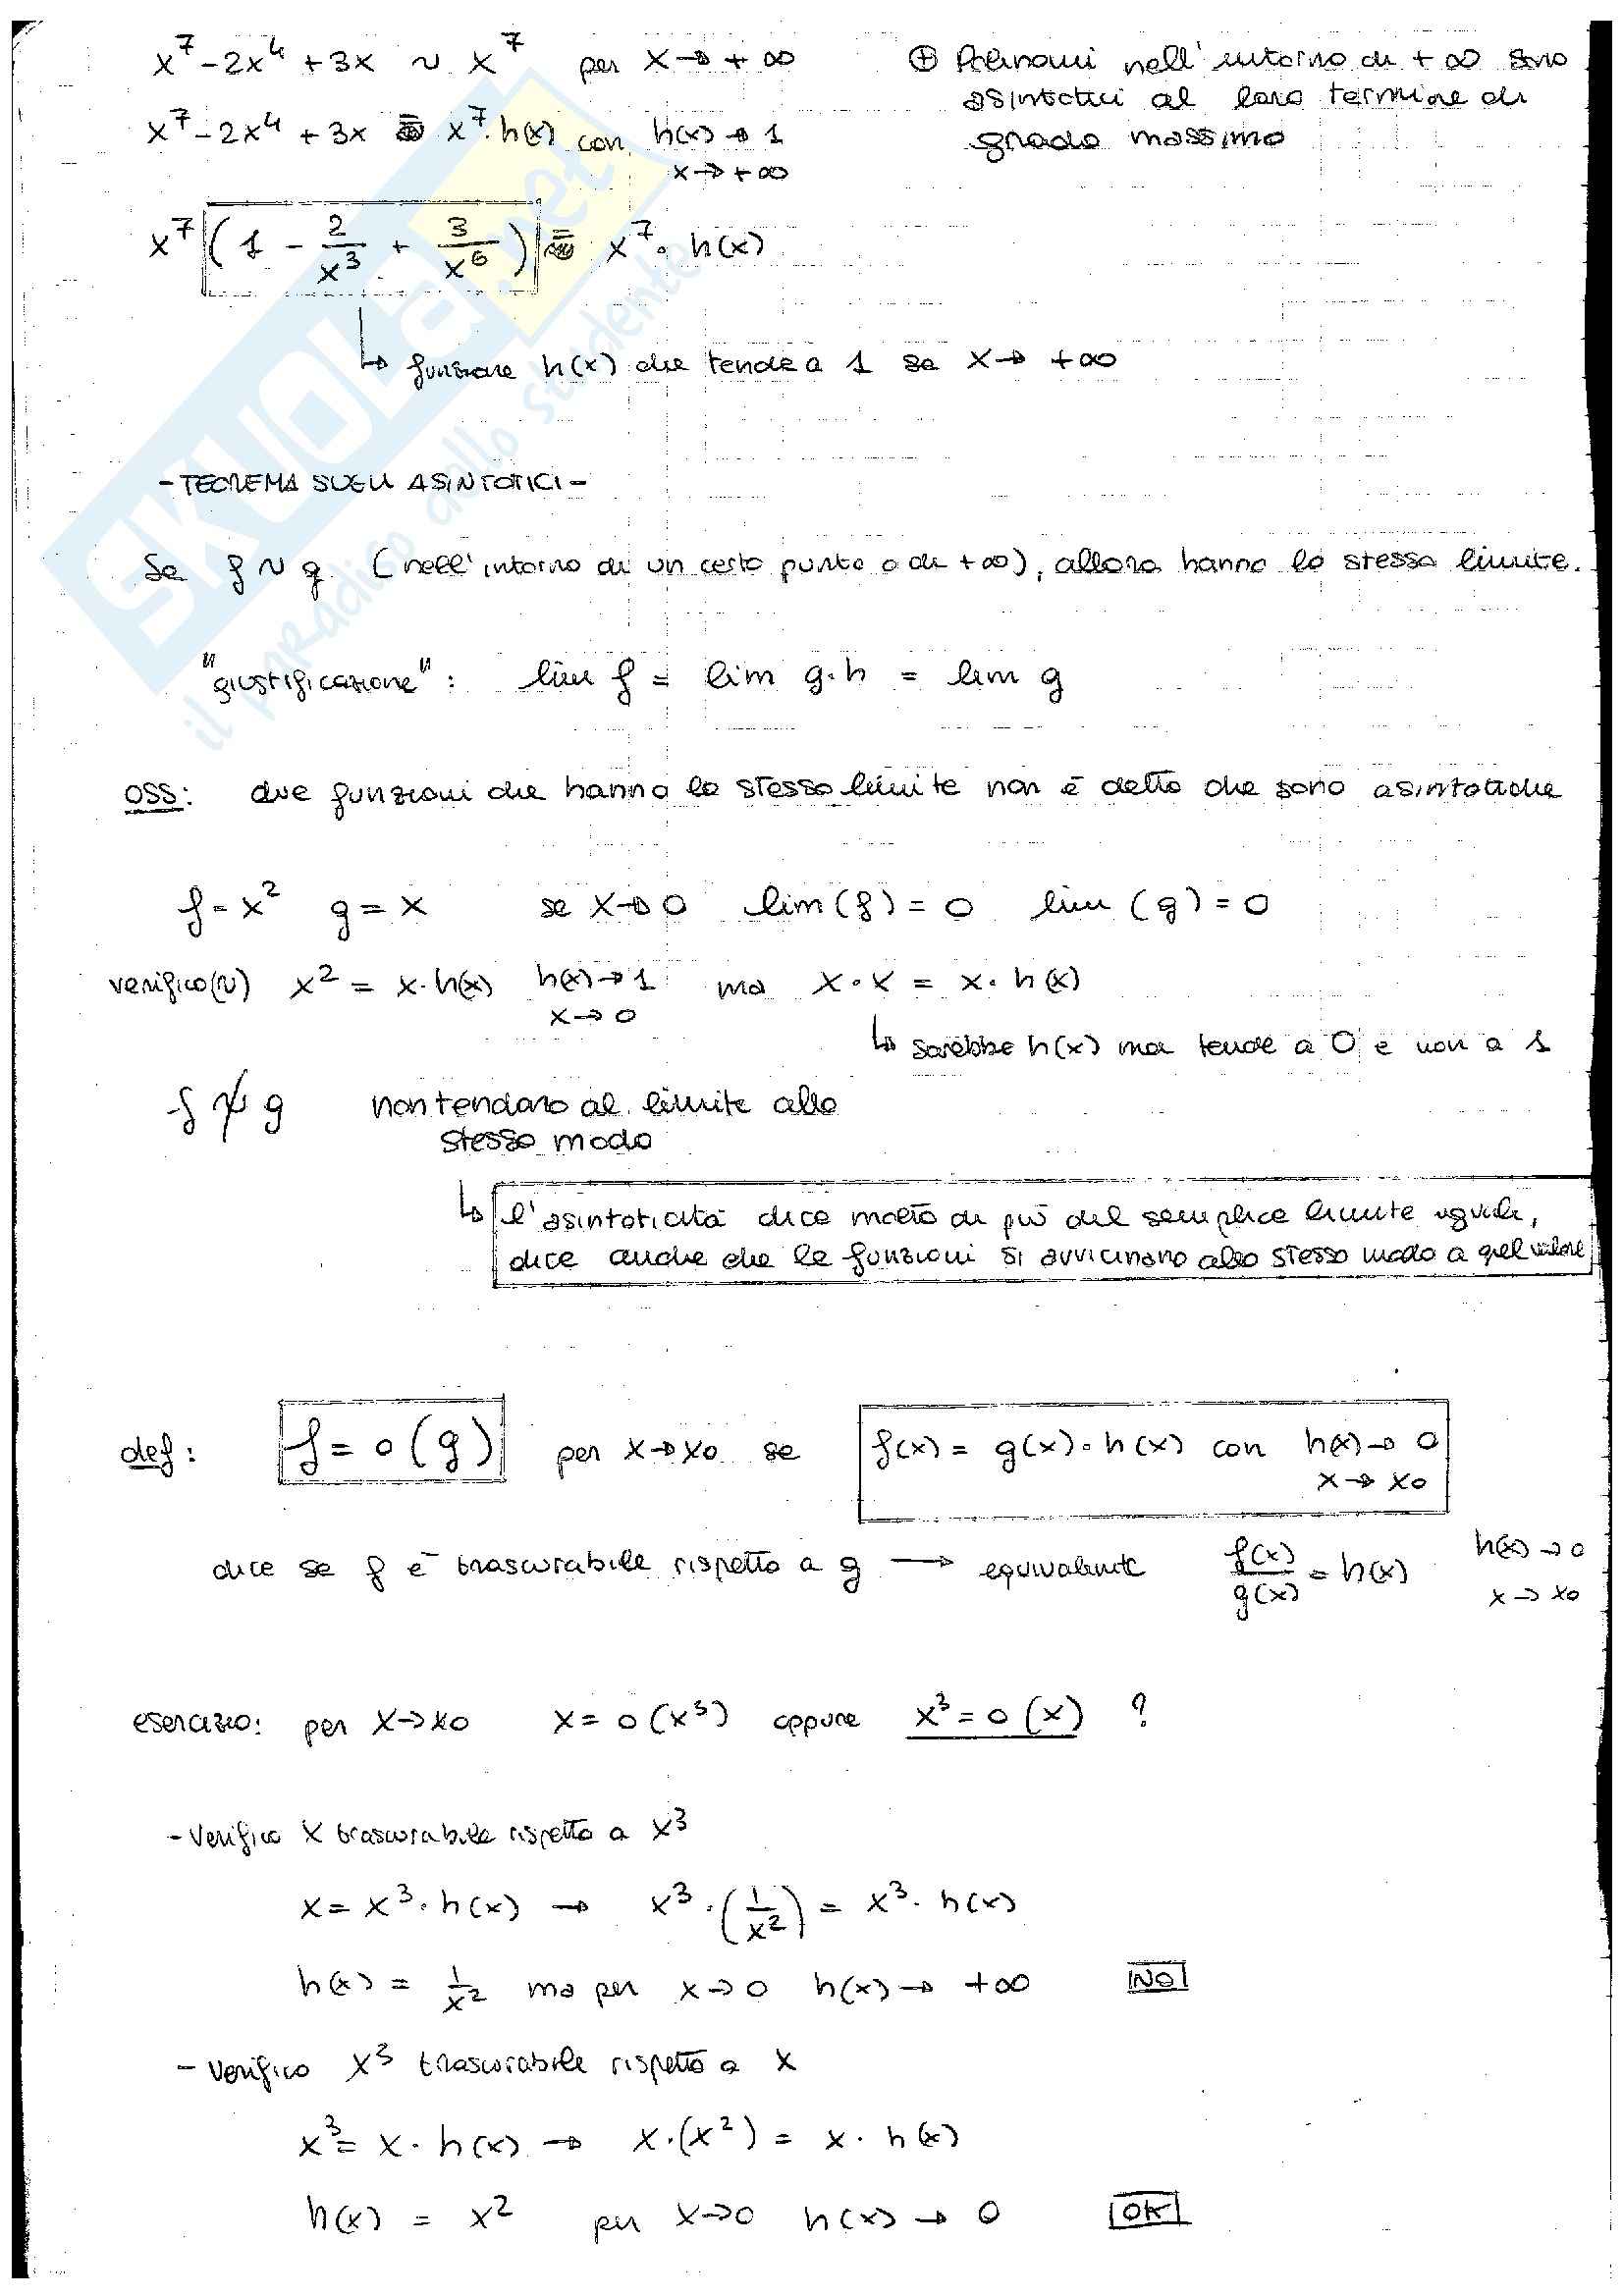 x⁷ - 2x⁴ + 3x ~ x⁷ per x → +∞
⊕ Polinomi nell'intorno di +∞ sono
asintotici al loro termine di
grado massimo
x⁷ - 2x⁴ + 3x = x⁷ · h(x) con h(x) → 1
x → +∞
x⁷ (1 - 2/x³ + 3/x⁶) = x⁷ · h(x)
↳ funzione h(x) che tende a 1 se x → +∞
- TEOREMA SUGLI ASINTOTICI -
Se f ~ g (nell'intorno di un certo punto o di +∞), allora hanno lo stesso limite.
"giustificazione": lim f = lim g·h = lim g
OSS: due funzioni che hanno lo stesso limite non è detto che sono asintotiche
f = x² g = x se x → 0 lim (f) = 0 lim (g) = 0
verifico (~) x² = x · h(x) h(x) → 1 ma x · x = x · h(x)
x → 0
↳ sarebbe h(x) ma tende a 0 e non a 1
f ≁ g non tendono al limite allo
stesso modo
↳ l'asintoticità dice molto di più del semplice limite uguale,
dice anche che le funzioni si avvicinano allo stesso modo a quel valore
def: f = o(g) per x → x0 se f(x) = g(x) · h(x) con h(x) → 0
x → x0
dice se f è trascurabile rispetto a g → equivalente f(x)/g(x) = h(x) h(x) → 0
x → x0
esercizio: per x → x0 x = o(x³) oppure x³ = o(x) ?
- Verifico x trascurabile rispetto a x³
x = x³ · h(x) → x³ · (1/x²) = x³ · h(x)
h(x) = 1/x² ma per x → 0 h(x) → +∞ NO
- Verifico x³ trascurabile rispetto a x
x³ = x · h(x) → x · (x²) = x · h(x)
h(x) = x² per x → 0 h(x) → 0 OK
SKUOLA.net
il paradiso dello studente